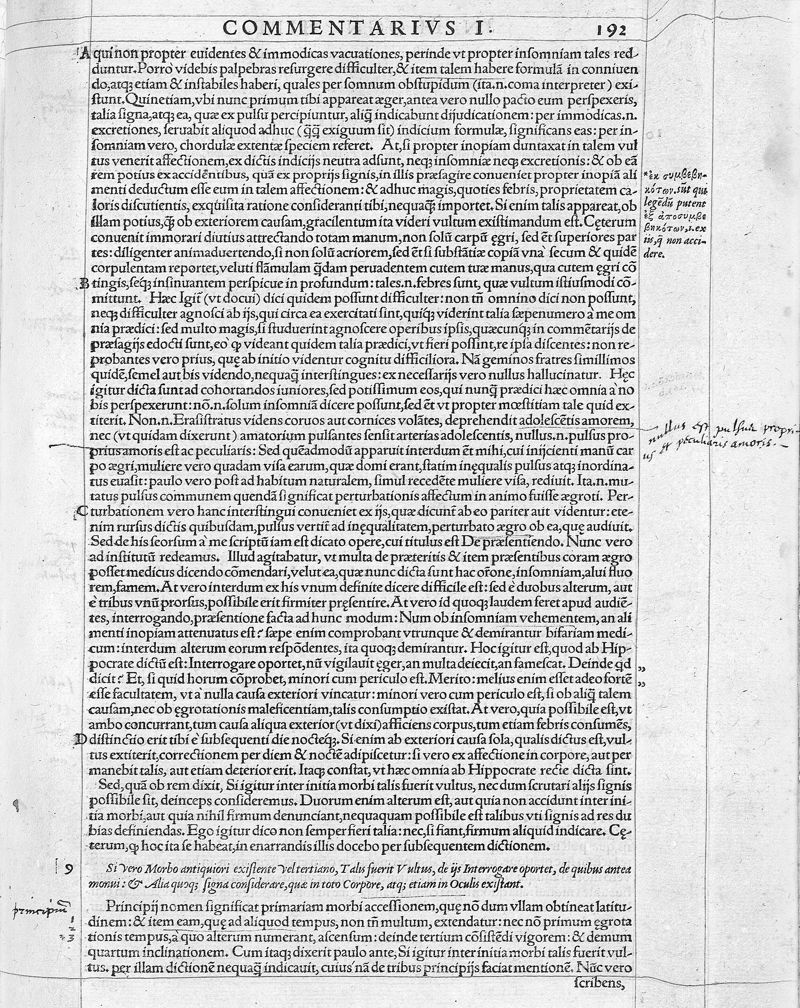 COMMENTARIVS I. 192
A qui non propter euidentes & immodicas vacuationes, perinde vt propter insomniam tales red
duntur. Porrò videbis palpebras resurgere difficulter, & item talem habere formulã in conniuen
do, atq; etiam & instabiles haberi, quales per somnum obstupidum (ita.n.coma interpreter) exi-
stunt. Quinetiam, vbi nunc primum tibi appareat æger, antea vero nullo pacto eum perspexeris,
talia signa, atq; ea, quæ ex pulsu percipiuntur, aliq̃ indicabunt dijudicationem: per immodicas.n.
excretiones, seruabit aliquod adhuc (q̃q̃ exiguum sit) indicium formulæ, significans eas: per in-
somniam vero, chordulæ extentæ speciem referet. At, si propter inopiam duntaxat in talem vul
tus venerit affectionem, ex dictis indicijs neutra adsunt, neq; insomniæ neq; excretionis: & ob eã
rem potius ex accidẽtibus, quã ex proprijs signis, in illis præsagire conueniet propter inopiã ali
menti deductum esse eum in talem affectionem: & adhuc magis, quoties febris, proprietatem ca-
loris discutientis, exquisita ratione consideranti tibi, nequaq̃ importet. Si enim talis appareat, ob
illam potius, q̃ ob exteriorem causam, gracilentum ita videri vultum existimandum est. Cęterum
conuenit immorari diutius attrectando totam manum, non solũ carpũ ęgri, sed ẽt superiores par
tes: diligenter animaduertendo, si non solũ acriorem, sed ẽt si substãtiæ copiã vnà secum & quidẽ
corpulentam reportet, veluti flãmulam q̃dam peruadentem cutem tuæ manus, qua cutem ęgri cõ
B tingis, seq; insinuantem perspicue in profundum: tales.n.febres sunt, quæ vultum istiusmodi cõ-
mittunt. Hæc Igit̃ (vt docui) dici quidem possunt difficulter: non tñ omnino dici non possunt,
neq; difficulter agnosci ab ijs, qui circa ea exercitati sint, quiq; viderint talia sæpenumero à me om
nia prædici: sed multo magis, si studuerint agnoscere operibus ipsis, quæcunq; in commẽtarijs de
præsagijs edocti sunt, eo q̃ videant quidem talia prædici, vt fieri possint, re ipsa discentes: non re-
probantes vero prius, quę ab initio videntur cognitu difficiliora. Nã geminos fratres simillimos
quidẽ, semel aut bis videndo, nequaq̃ interstingues: ex necessarijs vero nullus hallucinatur. Hęc
igitur dicta sunt ad cohortandos iuniores, sed potissimum eos, qui nunq̃ prædici hæc omnia à no
bis perspexerunt: nõ.n.solum insomniã dicere possunt, sed ẽt vt propter mœstitiam tale quid ex-
titerit. Non.n.Erasistratus videns coruos aut cornices volãtes, deprehendit adolescẽtis amorem,
nec (vt quidam dixerunt) amatorium pulsantes sensit arterias adolescentis, nullus.n.pulsus pro-
prius amoris est ac peculiaris: Sed quẽadmodũ apparuit interdum ẽt mihi, cui inijcienti manũ car
po ægri, muliere vero quadam visa earum, quæ domi erant, statim inęqualis pulsus atq; inordina-
tus euasit: paulo vero post ad habitum naturalem, simul recedẽte muliere visa, rediuit. Ita.n.mu-
tatus pulsus communem quendã significat perturbationis affectum in animo fuisse ægroti. Per-
C turbationem vero hanc interstingui conueniet ex ijs, quæ dicunt̃ ab eo pariter aut videntur: ete-
nim rursus dictis quibusdam, pulsus vertit̃ ad inęqualitatem, perturbato ægro ob ea, quę audiuit.
Sed de his seorsum à me scriptũ iam est dicato opere, cui titulus est De præsentiendo. Nunc vero
ad institutũ redeamus. Illud agitabatur, vt multa de præteritis & item præsentibus coram ægro
posset medicus dicendo cõmendari, velut ea, quæ nunc dicta sunt hac orõne, insomniam, alui fluo
rem, famem. At vero interdum ex his vnum definite dicere difficile est: sed è duobus alterum, aut
è tribus vnũ prorsus, possibile erit firmiter pręsentire. At vero id quoq; laudem feret apud audiẽ-
tes, interrogando, præsensione facta ad hunc modum: Num ob insomniam vehementem, an ali
menti inopiam attenuatus est? sæpe enim comprobant vtrunque & demirantur bifariam medi-
cum: interdum alterum eorum respõdentes, ita quoq; demirantur. Hoc igitur est, quod ab Hip-
pocrate dictũ est: Interrogare oportet, nũ vigilauit ęger, an multa deiecit, an famescat. Deinde q̃d
dicit? Et, si quid horum cõprobet, minori cum periculo est. Merito: melius enim esset adeo fortẽ
esse facultatem, vt à nulla causa exteriori vincatur: minori vero cum periculo est, si ob aliq̃ talem
causam, nec ob ęgrotationis maleficentiam, talis consumptio existat. At vero, quia possibile est, vt
ambo concurrant, tum causa aliqua exterior (vt dixi) afficiens corpus, tum etiam febris consumẽs,
D distinctio erit tibi è subsequenti die nocteq;. Si enim ab exteriori causa sola, qualis dictus est, vul-
tus extiterit, correctionem per diem & noctẽ adipiscetur: si vero ex affectione in corpore, aut per
manebit talis, aut etiam deterior erit. Itaq; constat, vt hæc omnia ab Hippocrate recte dicta sint.
Sed, quã ob rem dixit, Si igitur inter initia morbi talis fuerit vultus, nec dum scrutari alijs signis
possibile sit, deinceps consideremus. Duorum enim alterum est, aut quia non accidunt inter ini-
tia morbi, aut quia nihil firmum denunciant, nequaquam possibile est talibus vti signis ad res du
bias definiendas. Ego igitur dico non semper fieri talia: nec, si fiant, firmum aliquid indicare. Cę-
terum, q̃ hoc ita se habeat, in enarrandis illis docebo per subsequentem dictionem.
9 Si Vero Morbo antiquiori existente vel tertiano, Talis fuerit Vultus, de ijs Interrogare oportet, de quibus antea
monui: & Alia quoq; signa considerare, quæ in toto Corpore, atq; etiam in Oculis existant.
Principij nomen significat primariam morbi accessionem, quę nõ dum vllam obtineat latitu-
dinem: & item eam, quę ad aliquod tempus, non tñ multum, extendatur: nec nõ primum ęgrota
tionis tempus, à quo alterum numerant, ascensum: deinde tertium cõsistẽdi vigorem: & demum
quartum inclinationem. Cum itaq; dixerit paulo ante, Si igitur inter initia morbi talis fuerit vul-
tus. per illam dictionẽ nequaq̃ indicauit, cuius nã de tribus principijs faciat mentionẽ. Nũc vero
scribens,
*ἐκ συμβεβη-
κότων. sũt qui
legẽdũ putent
ἐξ ἀποσυμβε
βηκότων, i. ex
ijs, q̃ non acci-
dere.
nullus est pulsus propri-
us et peculiaris amoris.
principiũ
1
2
3